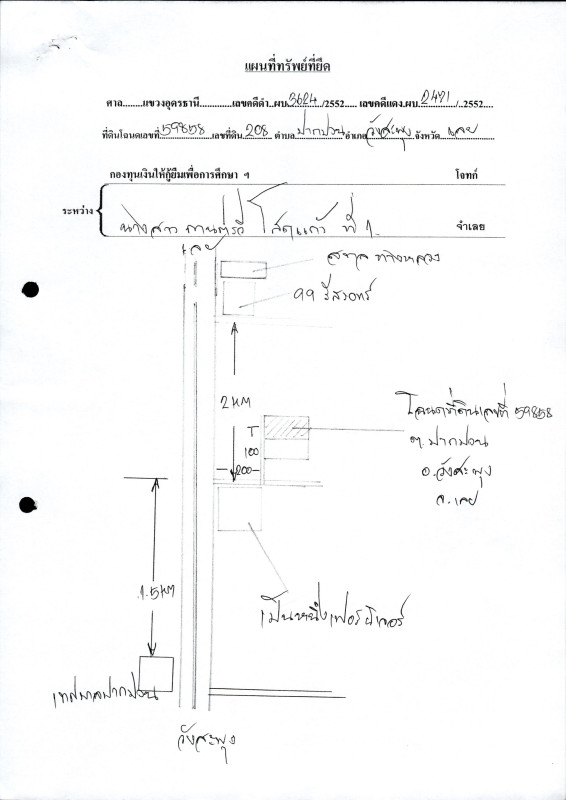 แผนที่ทรัพย์ที่ยึด
ศาล........แขวงอุดรธานี............เลขคดีดำ..ผบ.3624./2552..... เลขคดีแดง.ผบ.2471./..2552....
ที่ดินโฉนดเลขที่.59858...เลขที่ดิน.208. ตำบล ปากปวน อำเภอ วังสะพุง.จังหวัด เลย
กองทุนเงินให้กู้ยืมเพื่อการศึกษา ฯ โจทก์
ระหว่าง
นางสาว ที่ 1. จำเลย
เลย
ทางหลวง
99 รีสอร์ท
2 KM
T
100
200
โฉนดที่ดินเลขที่ 59858
ต.ปากปวน
อ.วังสะพุง
จ.เลย
1.5 KM
เฟอร์นิเจอร์
เทศบาลปากปวน
วังสะพุง